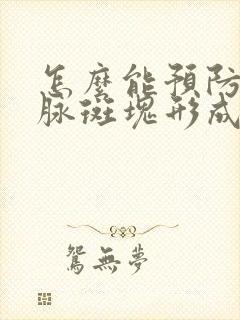 怎麼能預防
脈斑塊形成
鴛無夢